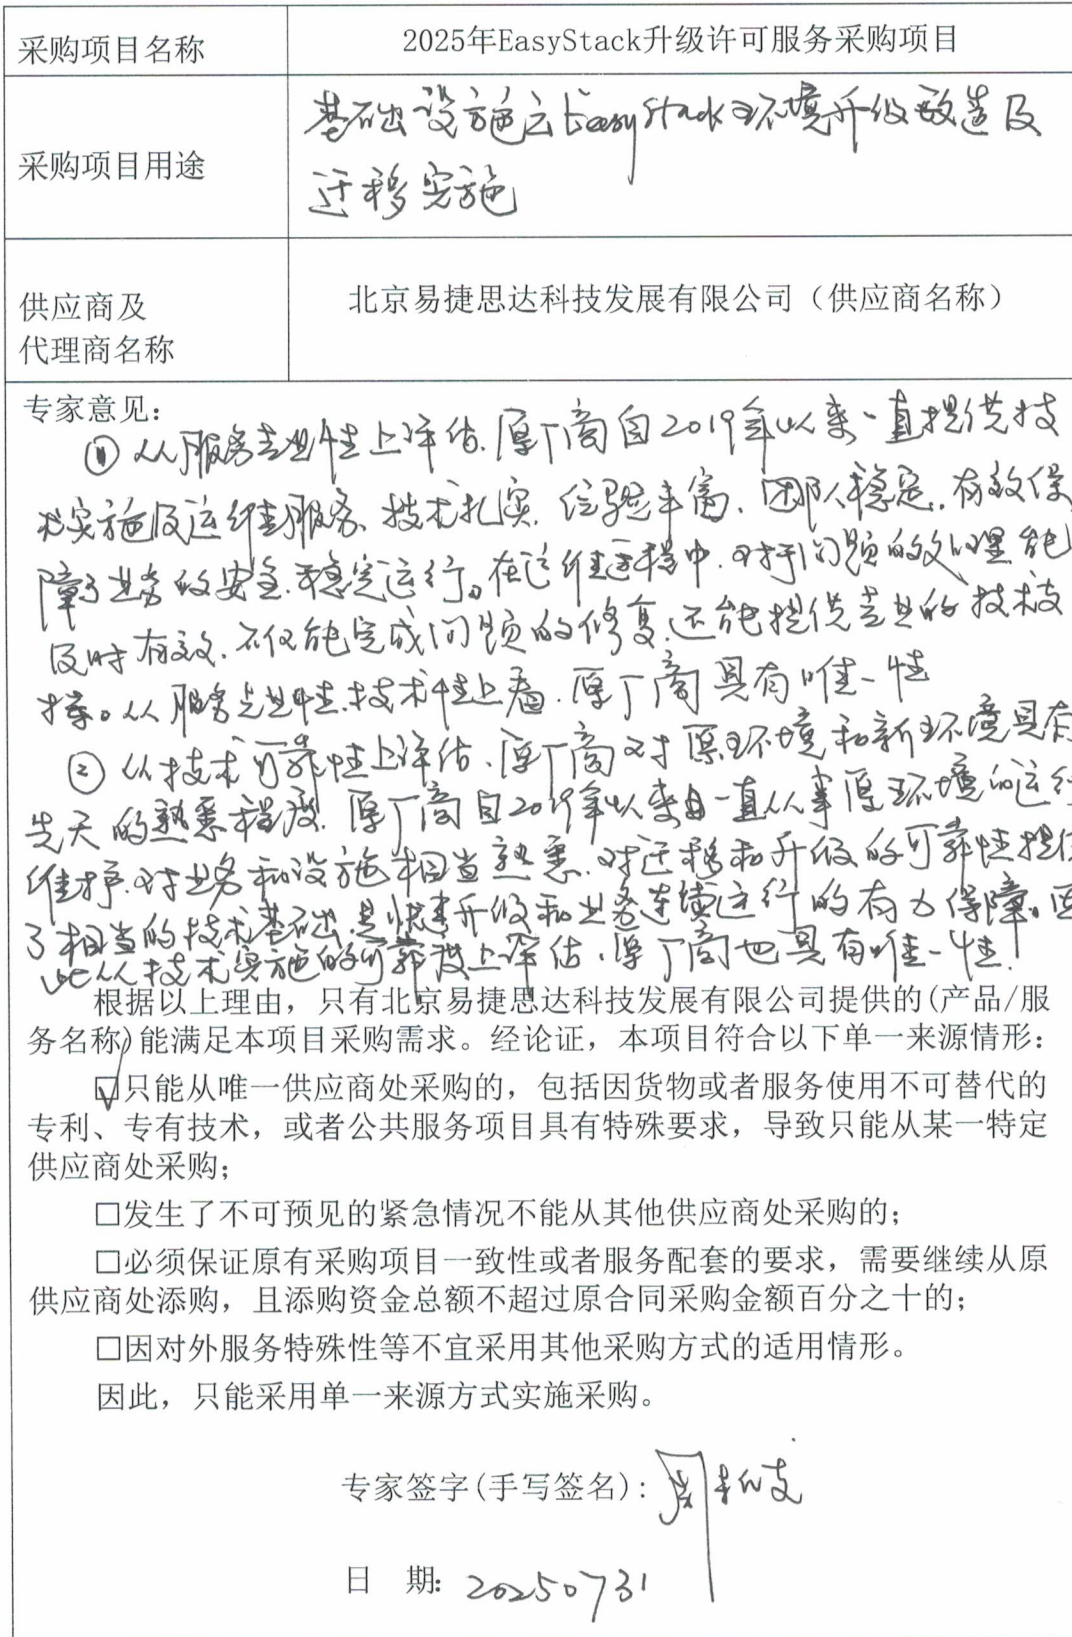 采购项目名称
2025年EasyStack升级许可服务采购项目
采购项目用途
基础设施云EasyStack环境升级改造及
迁移实施
供应商及
代理商名称
北京易捷思达科技发展有限公司（供应商名称）
专家意见：
① 从服务专业性上评估、原厂商自2019年以来一直提供技
术实施及运维服务、技术扎实、经验丰富、团队稳定、有效保
障了业务的安全、稳定运行。在运维过程中、对于问题的处理能
及时有效、不仅能完成问题的修复、还能提供专业的技术支
撑。从服务专业性、技术性上看、原厂商具有唯一性
② 从技术可靠性上评估、原厂商对原环境和新环境具有
先天的熟悉程度、原厂商自2019年以来一直从事原环境的运行
维护、对业务和设施相当熟悉、对迁移和升级的可靠性提供
了相当的技术基础、是快速升级和业务连续运行的有力保障。因
此从技术实施的可靠度上评估、原厂商也具有唯一性！
根据以上理由，只有北京易捷思达科技发展有限公司提供的(产品/服
务名称)能满足本项目采购需求。经论证，本项目符合以下单一来源情形：
☑只能从唯一供应商处采购的，包括因货物或者服务使用不可替代的
专利、专有技术，或者公共服务项目具有特殊要求，导致只能从某一特定
供应商处采购；
□发生了不可预见的紧急情况不能从其他供应商处采购的；
□必须保证原有采购项目一致性或者服务配套的要求，需要继续从原
供应商处添购，且添购资金总额不超过原合同采购金额百分之十的；
□因对外服务特殊性等不宜采用其他采购方式的适用情形。
因此，只能采用单一来源方式实施采购。
专家签字(手写签名)：
日 期: 20250731